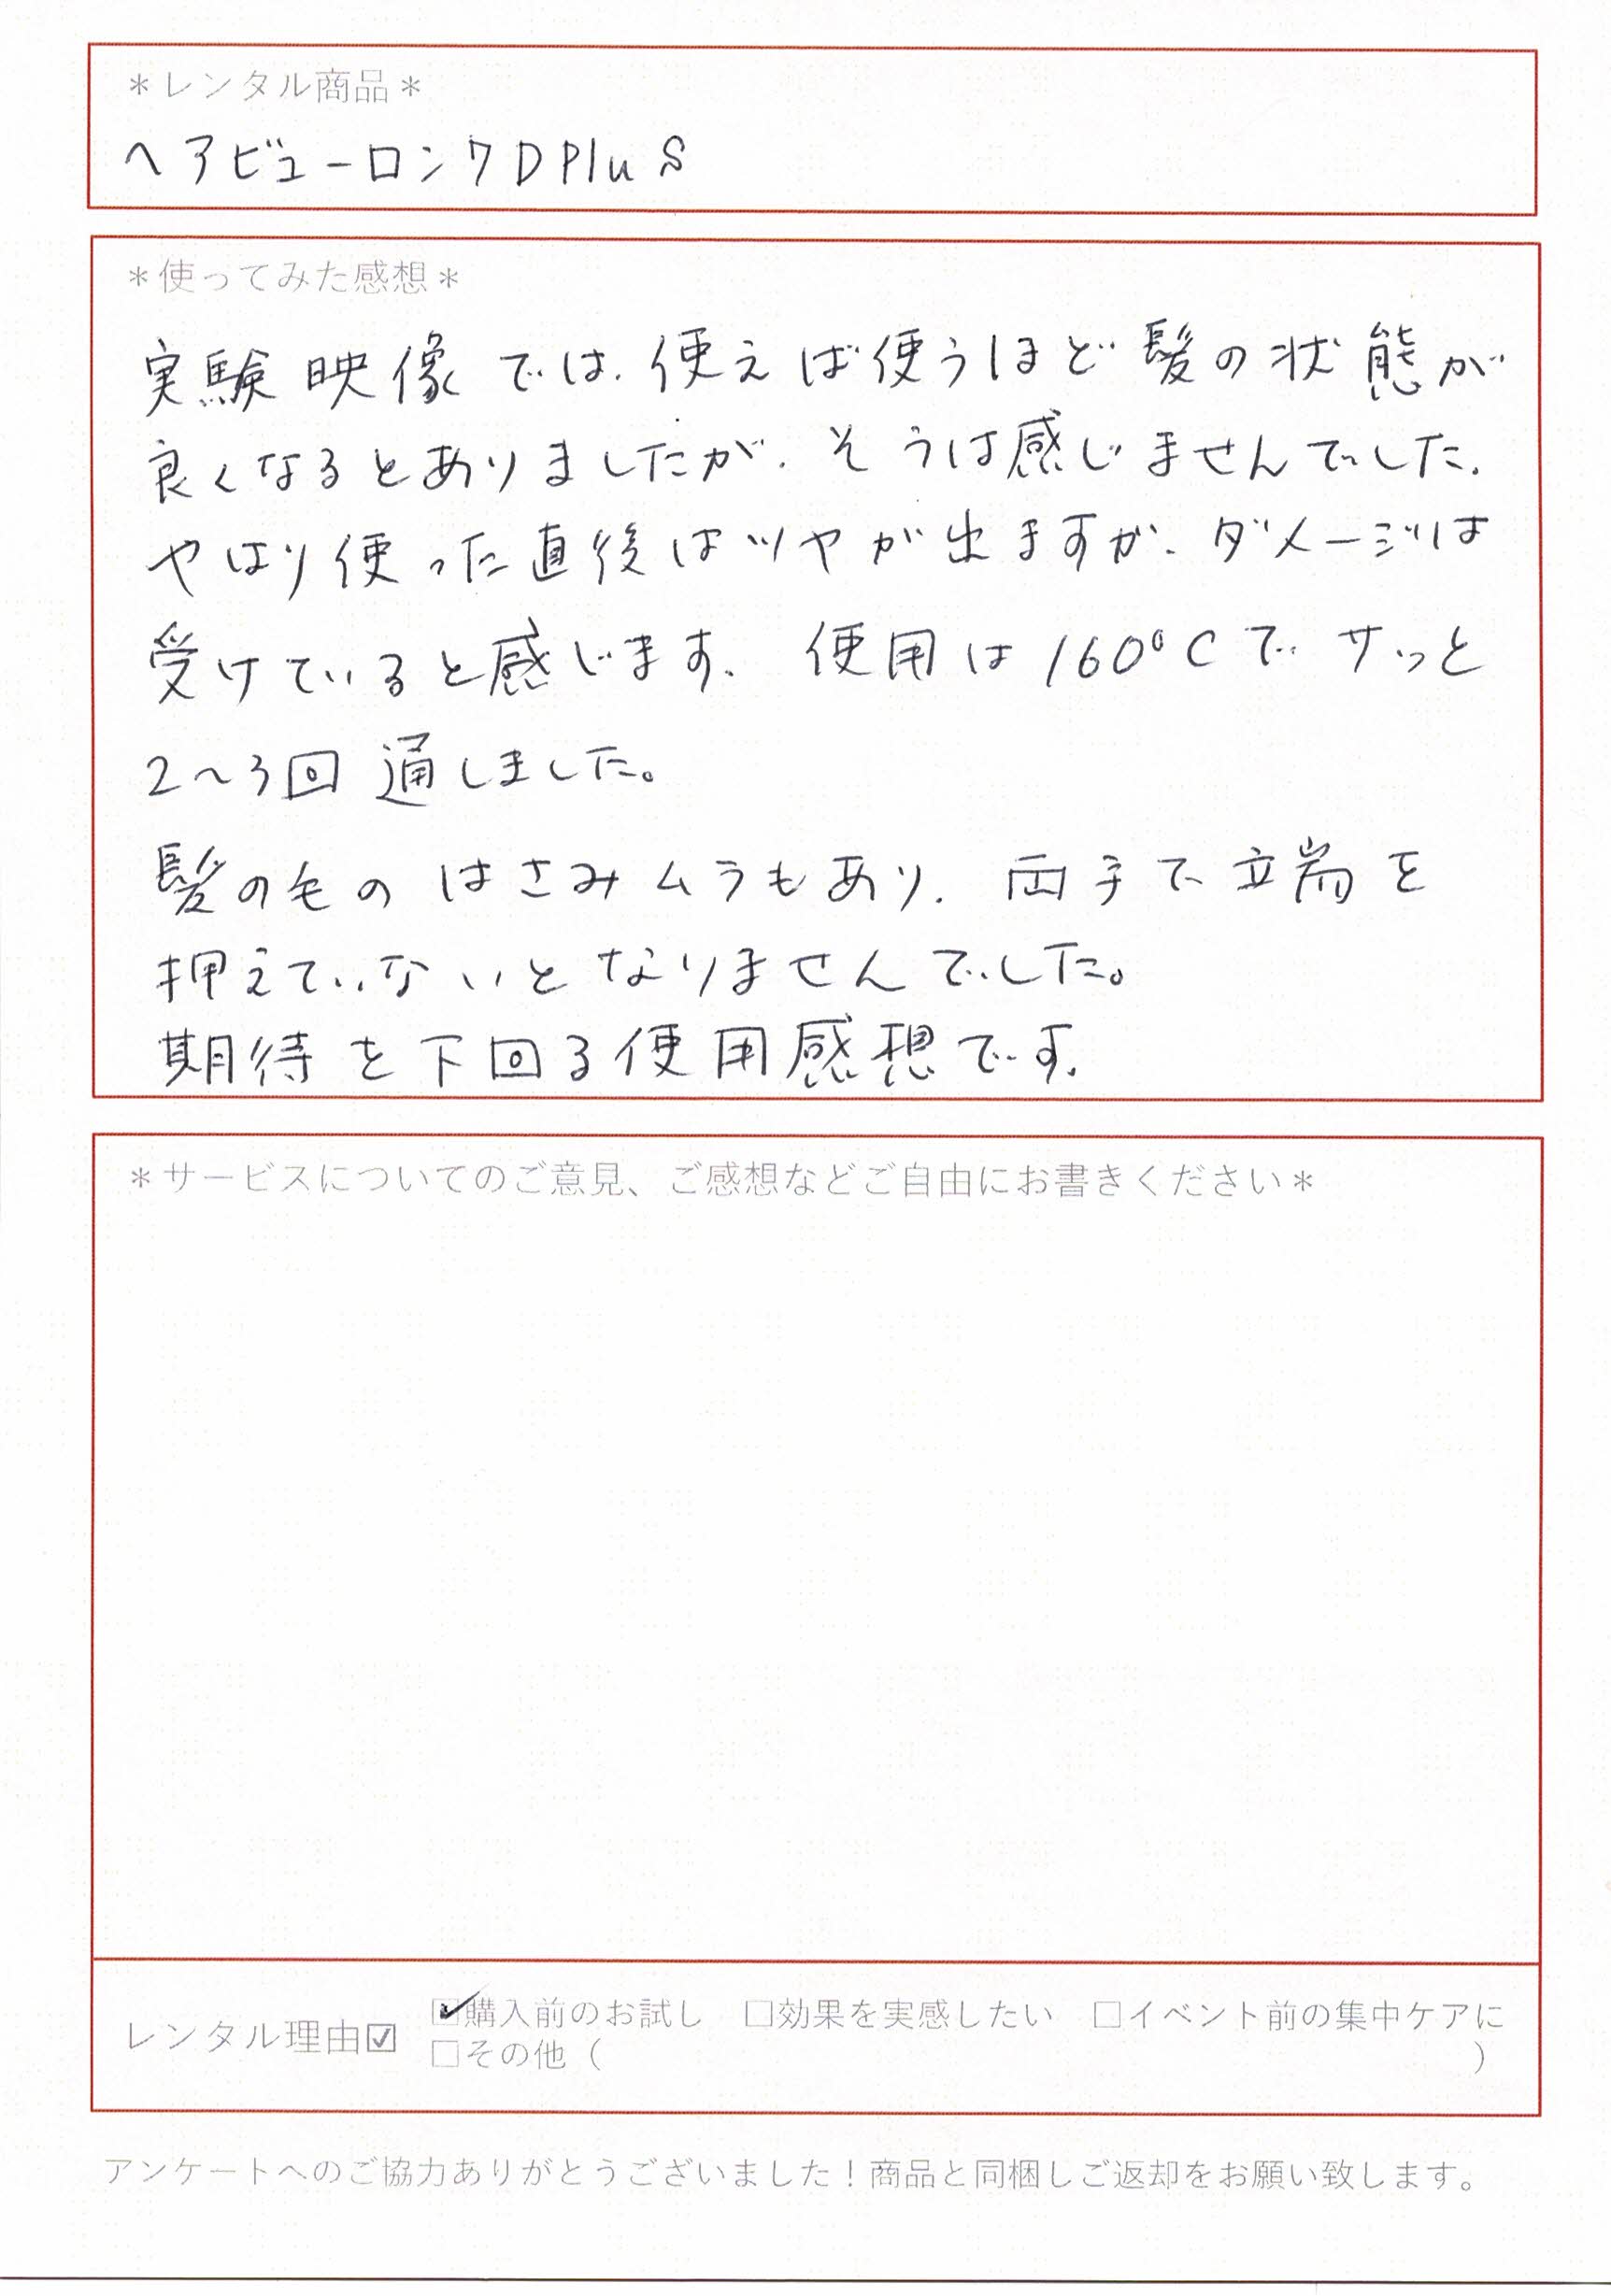 ＊レンタル商品＊
ヘアビューロン7D Plus
＊使ってみた感想＊
実験映像では、使えば使うほど髪の状態が
良くなるとありましたが、そうは感じませんでした。
やはり使った直後はツヤが出ますが、ダメージは
受けていると感じます。使用は160℃でサッと
2〜3回通しました。
髪の毛のはさみムラもあり、両手で立端を
押えていないとなりませんでした。
期待を下回る使用感想です。
＊サービスについてのご意見、ご感想などご自由にお書きください＊
レンタル理由☑ ☑購入前のお試し □効果を実感したい □イベント前の集中ケアに
□その他（ ）
アンケートへのご協力ありがとうございました！商品と同梱しご返却をお願い致します。